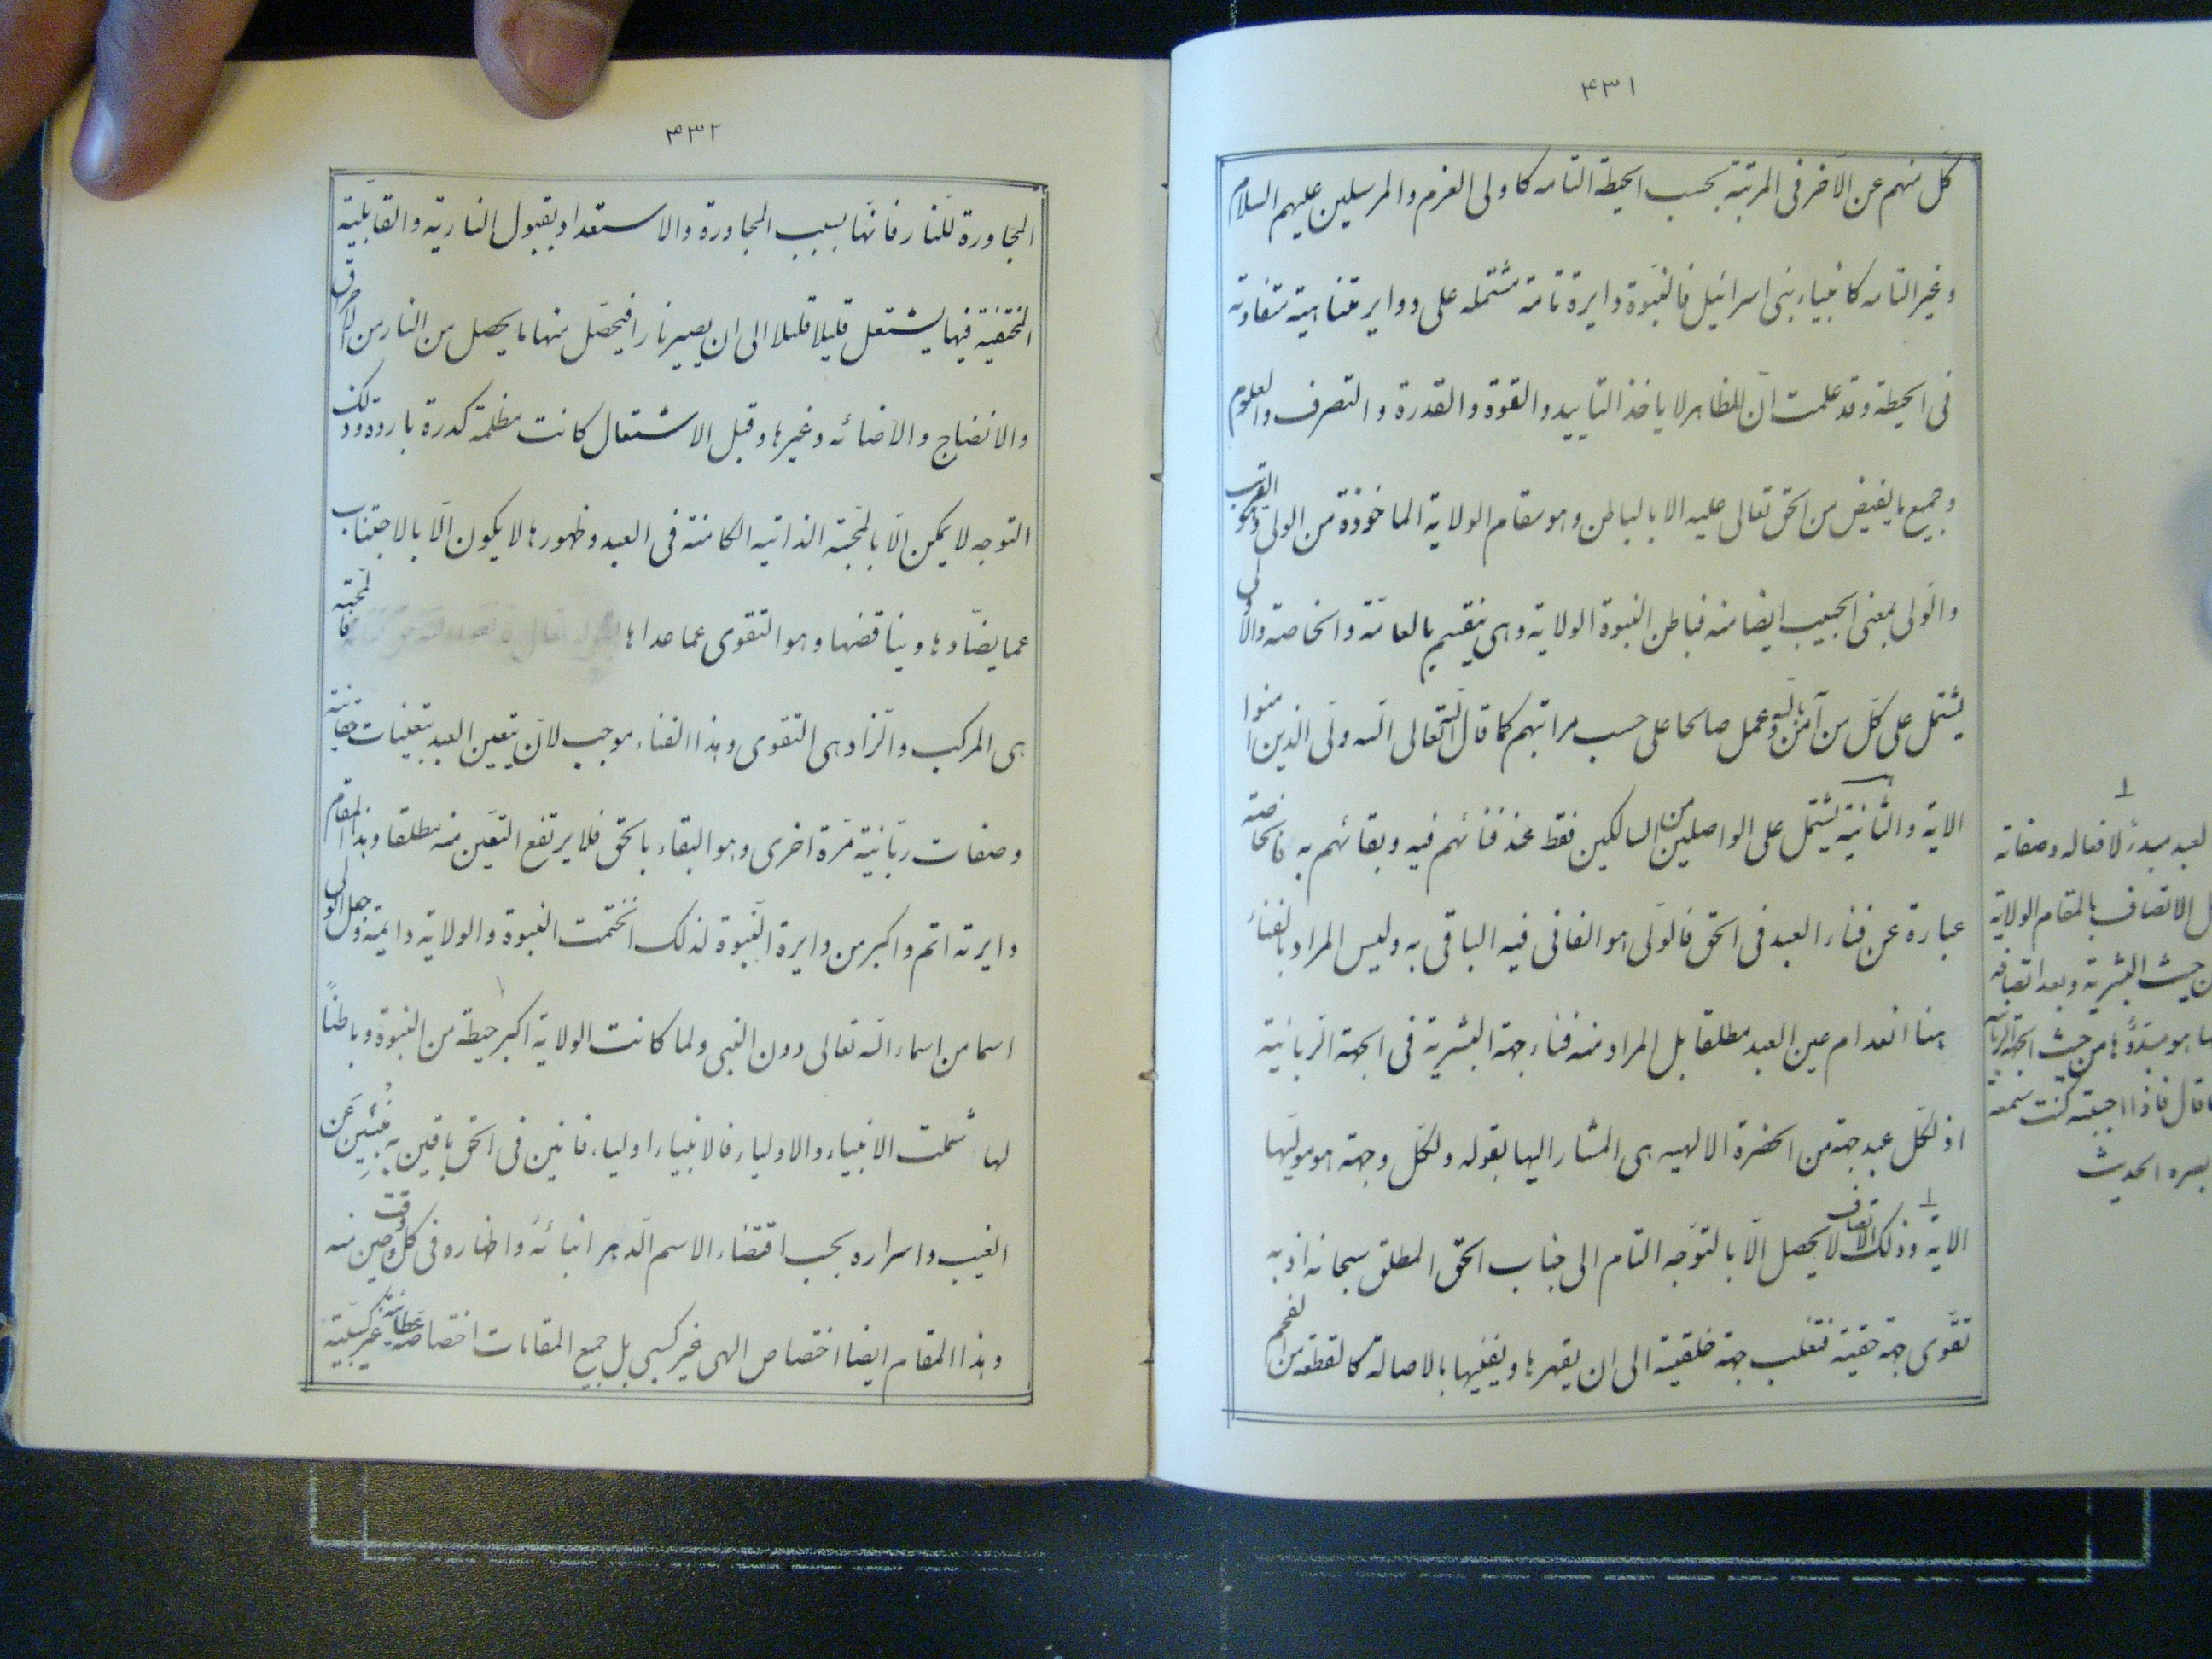 ۴۳۱
كل منهم عن الآخر فى المرتبة بحسب الحيطة التامه كاولى العزم والمرسلين عليهم السلام
وغير التامه كانبياء بنى اسرائيل فالنبوة دايرة تامة مشتمله على دواير متناهية متفاوته
فى الحيطة وقد علمت ان للظاهر لا ياخذ التاييد والقوة والقدرة والتصرف والعلوم
وجميع ما يفيض من الحق تعالى عليه الا بالباطن وهو مقام الولاية الماخوذة من الولى وهو القرب
والولى بمعنى الحبيب ايضا منه فباطن النبوة الولاية وهى ينقسم بالعامة والخاصة والاولى
يشتمل على كل من آمن بالله وعمل صالحا على حسب مراتبهم كما قال الله تعالى الله ولى الذين امنوا
الاية والثانية يشتمل على الواصلين من السالكين فقط عند فنائهم فيه وبقائهم به فالخاصة
عبارة عن فناء العبد فى الحق فالولى هو الفانى فيه الباقى به وليس المراد بالفناء
هنا انعدام عين العبد مطلقا بل المراد منه فناء جهة البشرية فى الجهة الربانية
اذ لكل عبد جهة من الحضرة الالهيه هى المشار اليها بقوله ولكل وجهة هو موليها
الاية وذلك الاتصاف لا يحصل الا بالتوجه التام الى جناب الحق المطلق سبحانه اذ به
تقوى جهة حقية فتغلب جهة خلقية الى ان يقهرها ويفنيها بالاصالة كالقطعة من الفحم
لعبد مبدء لافعاله وصفاته
ل الاتصاف بالمقام الولاية
ن حيث البشرية وبعد اتصافه
ها هو مبدؤها من حيث الجهة الربانية
ا قال فاذا احببته كنت سمعه
بصره الحديث
۴۳۲
المجاورة للنار فانها بسبب المجاورة والاستعداد بقبول النارية والقابلية
المختفية فيها يشتعل قليلا قليلا الى ان يصير نارا فيحصل منها ما يحصل من النار من الاحراق
والانضاج والاضائه وغيرها وقبل الاشتعال كانت مظلمة كدرة باردة وذلك
التوجه لا يمكن الا بالمحبة الذاتيه الكامنة فى العبد وظهورها لا يكون الا بالاجتناب
عما يضادها ويناقضها وهو التقوى عما عداها فالمحبة
هى المركب والزاد هى التقوى وهذا الفناء موجب لان يتعين العبد بتعينات حقانية
وصفات ربانية مرة اخرى وهو البقاء بالحق فلا يرتفع التعين منه مطلقا وهذا المقام
دايرته اتم واكبر من دايرة النبوة لذلك انختمت النبوة والولاية دايمة وجعل الولى
اسما من اسماء الله تعالى دون النبى ولما كانت الولاية اكبر حيطة من النبوة وباطنا
لها شملت الانبياء والاولياء فالانبياء اولياء فانين فى الحق باقين به منبئين عن
الغيب واسراره بحسب اقتضاء الاسم الدهر انبائه واظهاره فى كل وقت وحين منه
وهذا المقام ايضا اختصاص الهى غير كسبى بل جميع المقامات اختصاصية عطائية غير كسبية